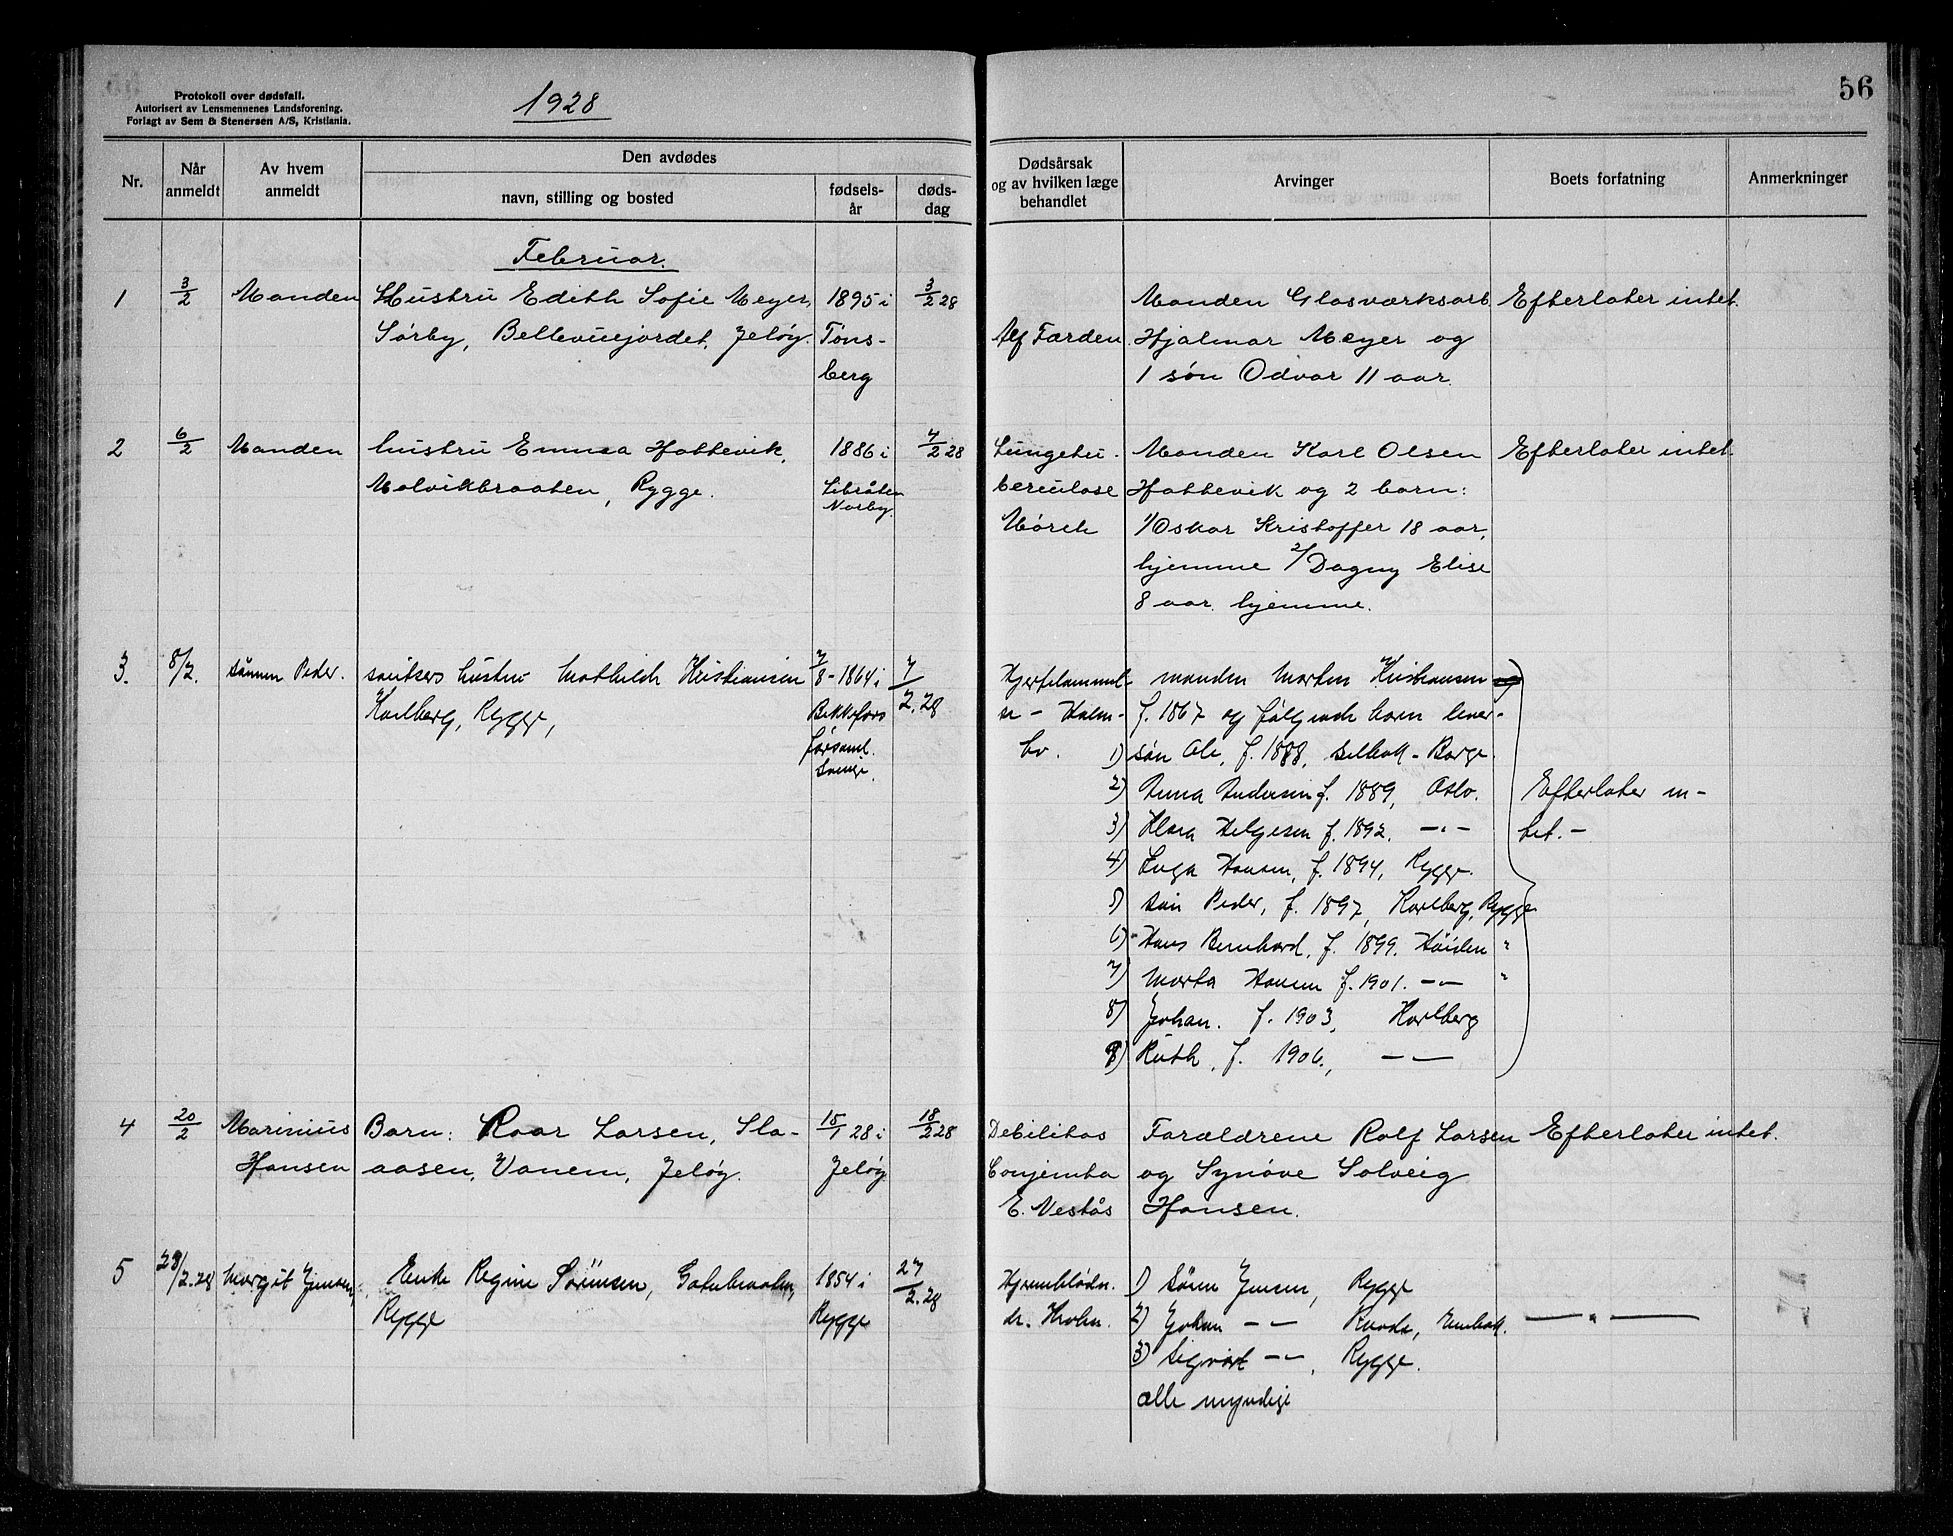 Protokoll over dødsfall.
Autorisert av Lensmennenes Landsforening.
Forlagt av Sem & Stenersen A/S, Kristiania.
1928
56
Nr.
Når anmeldt
Av hvem anmeldt
Den avdødes
navn, stilling og bosted
fødsels-år
døds-dag
Dødsårsak og av hvilken læge behandlet
Arvinger
Boets forfatning
Anmerkninger
Februar.
1 3/2 Manden Hustru Edith Sofie Meyer, 1895 i 3/2 28 Manden Glasværksarb. Efterlater intet.
Sørby, Bellevuejordet, Jeløy. Tøns- Alf Færden Hjalmar Meyer og
berg 1 søn Odvar 11 aar.
2 6/2 Manden hustru Emma Hattevik, 1886 i 4/2 28 Lungetu- Manden Karl Olsen Efterlater intet.
Molvikbraaten, Rygge. berculose Hattevik og 2 barn:
Mørch 1/ Oskar Kristoffer 18 aar,
hjemme 2/ Dagny Elise
8 aar. hjemme.
3. 8/2. sønnen Peder. hustru Mathilde Kristiansen 7/8-1864 i 7/2.28 manden Morten Kristiansen
Karlberg, Rygge, f. 1867 og følgende barn lever-
1) søn Ole, f. 1888, Selbak - Borge.
2) Anna Andersen f. 1889, Oslo. Efterlater in-
3) Klara Helgesen f. 1892. -"- tet. -
4) Inga Hansen, f. 1894, Rygge.
5) søn Peder, f. 1897, Karlberg, Rygge
6) " Hans Bernhard, f. 1899. Høiden "
7) Marta Hansen f. 1901. -"- "
8) Johan. f. 1903, Karlberg
9) Ruth, f. 1906., -"-
4 20/2 Marinius Barn: Roar Larsen, Sla- 15/1 28 i 18/2 28 Debilitas Forældrene Rolf Larsen Efterlater intet.
Hansen aasen, Vanem, Jeløy. Jeløy Conjenita og Synøve Solveig
E. Vestås Hansen.
5 28/2.28 Margit Jensen, Enke Regine Sørensen, 1854 i 27/2.28 Hjerneblødn. 1) Søren Jensen, Rygge
Rygge Rygge dr. Krohn. 2) Johan -"- Raade, -"-
3) Sigvart -"-, Rygge.
alle myndige